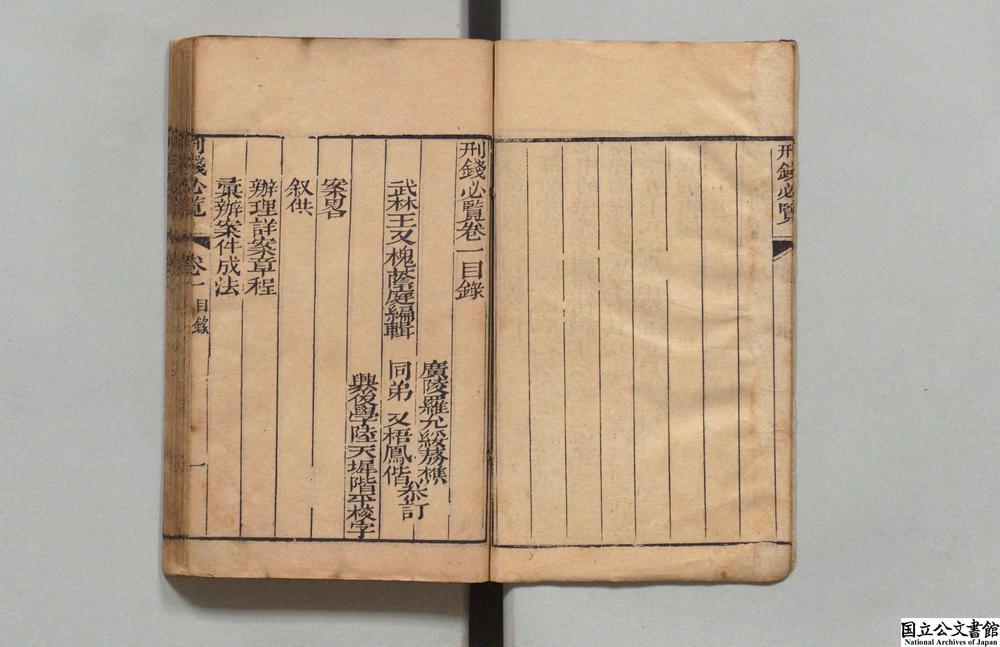 刑錢必覽
刑錢必覽卷一目錄
廣陵羅允綏蒍樵
武林王又槐蔭庭編輯
同弟 又梧鳳偕 叅訂
興俊學陸天墀階平校字
案畧
叙供
辦理詳案章程
彙辦案件成法
刑錢必覽
卷一
目錄
一
国立公文書館
National Archives of Japan